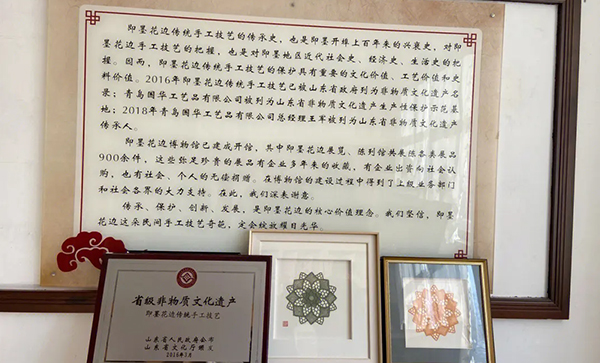 即墨花边传统手工技艺的传承史，也是即墨开埠上百年来的兴衰史，对即
墨花边手工技艺的把握，也是对即墨地区近代社会史、经济史、生活史的把
握。因而，即墨花边传统手工技艺的保护具有重要的文化价值、工艺价值和史
料价值。2016年即墨花边传统手工技艺已被山东省政府列为非物质文化遗产名
录；青岛国华工艺品有限公司被列为山东省非物质文化遗产生产性保护示范基
地；2018年青岛国华工艺品有限公司总经理王军被列为山东省非物质文化遗产
传承人。
即墨花边博物馆已建成开馆，其中即墨花边展览、陈列馆共展陈各类展品
900余件，这些弥足珍贵的展品有企业多年来的收藏，有企业出资向社会认
购，也有社会、个人的无偿捐赠。在博物馆的建设过程中得到了上级业务部门
和社会各界的大力支持。在此，我们深表谢意。
传承、保护、创新、发展，是即墨花边的核心价值理念。我们坚信，即墨
花边这朵民间手工技艺奇葩，定会绽放耀目光华。
省级非物质文化遗产
即墨花边传统手工技艺
山东省人民政府公布
山东省文化厅颁发
2016年3月